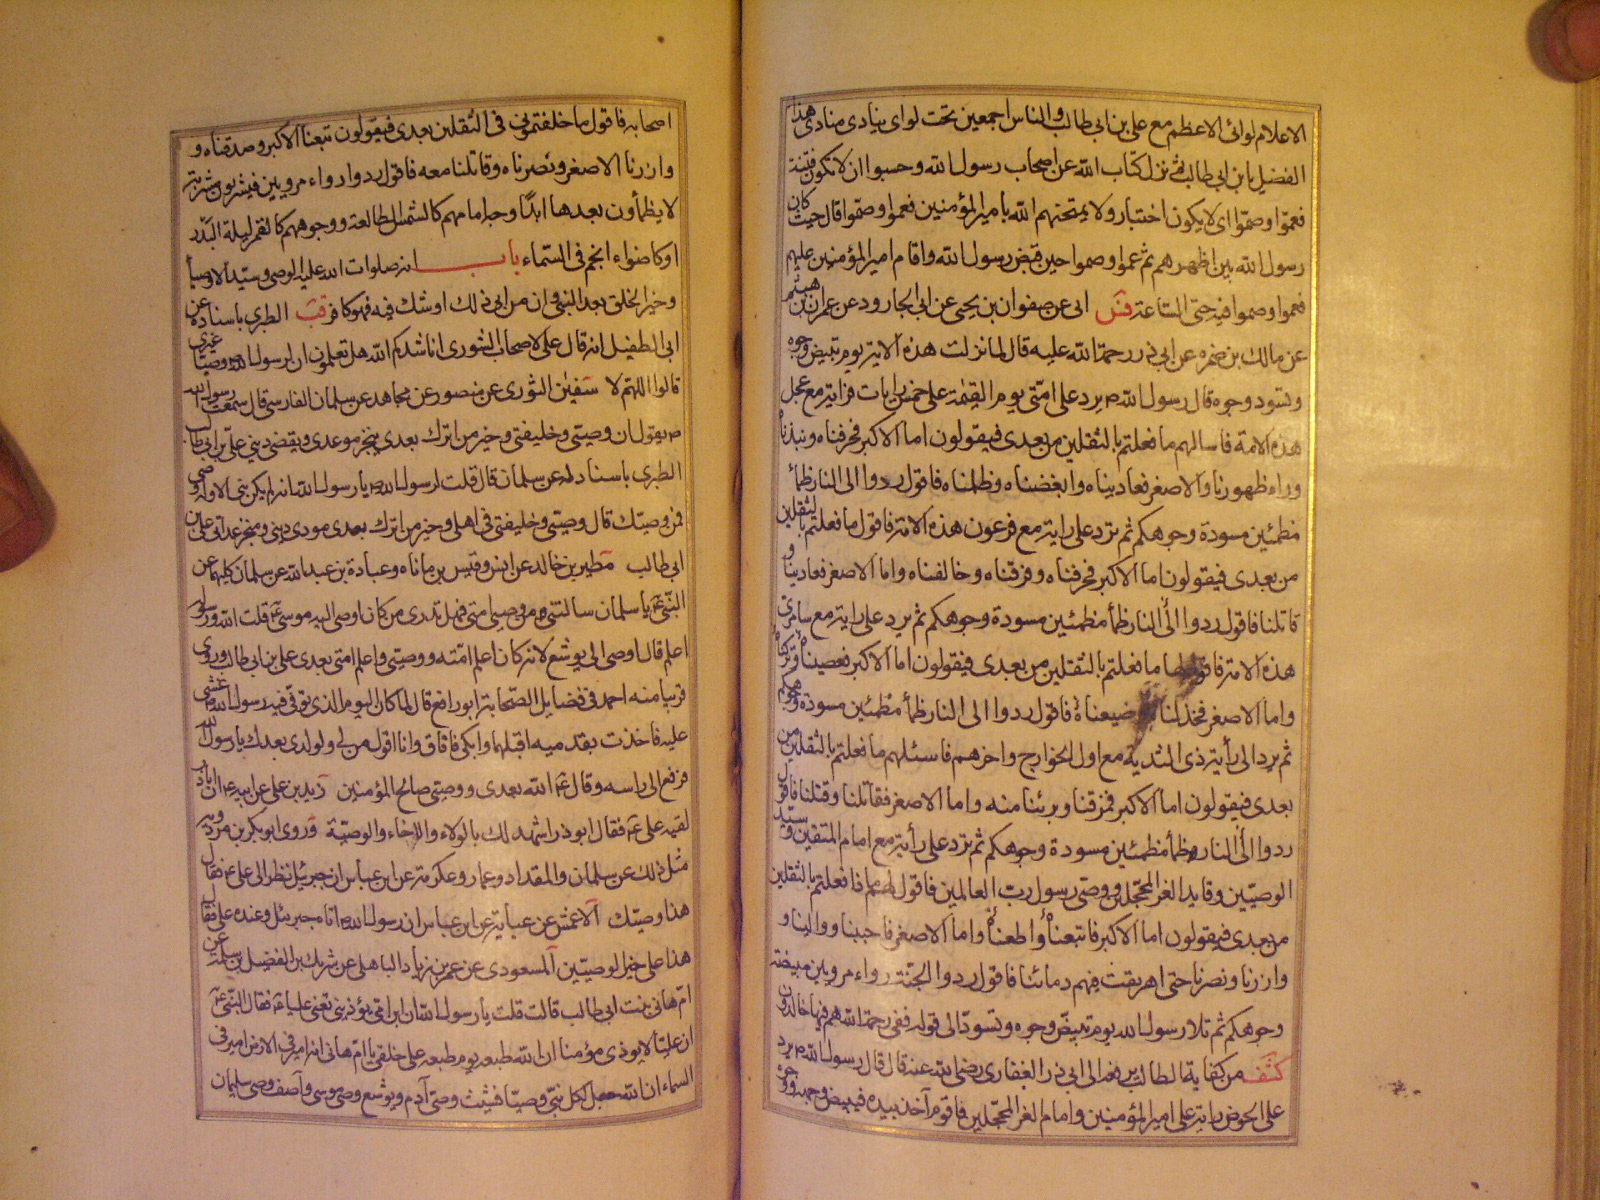 الاعلام لوائى الاعظم مع على بن ابى طالب والناس اجمعين تحت لواى ينادى منادى هذا
الفضل يا بن ابى طالب ثم نزل كتاب الله عن اصحاب رسول الله وحسبوا ان لا تكون فتنة
فعموا وصموا اى لا يكون اختبار ولا يمتحنهم الله بامير المؤمنين فعموا وصموا قال حيث كان
رسول الله بين اظهرهم ثم عموا وصموا حين قبض رسول الله واقام امير المؤمنين عليهم
فعموا وصموا فيه حتى الساعة فس ابى عن صفوان بن يحيى عن ابى الجارود عن عمران بن هيثم
عن مالك بن ضمره عن ابى ذر رحمة الله عليه قال لما نزلت هذه الاية يوم تبيض وجوه
وتسود وجوه قال رسول الله ص يرد على امتى يوم القيمة على خمس رايات فراية مع عجل
هذه الامة فاسالهم ما فعلتم بالثقلين من بعدى فيقولون اما الاكبر فحرفناه ونبذناه
وراء ظهورنا واما الاصغر فعاديناه وابغضناه وظلمناه فاقول ردوا الى النار ظمأ
مظمئين مسودة وجوهكم ثم ترد على راية مع فرعون هذه الامة فاقول ما فعلتم بالثقلين
من بعدى فيقولون اما الاكبر فحرفناه وفرقناه وخالفناه واما الاصغر فعادينا و
قاتلنا فاقول ردوا الى النار ظمأ مظمئين مسودة وجوهكم ثم ترد على راية مع سامرى
هذه الامة فاقول لها ما فعلتم بالثقلين من بعدى فيقولون اما الاكبر فعصيناه وتركناه
واما الاصغر فخذلنا وضيعناه فاقول ردوا الى النار ظمأ مظمئين مسودة وجوهكم
ثم يرد الى رأية ذى الثدية مع اول الخوارج واخرهم فاسئلهم ما فعلتم بالثقلين من
بعدى فيقولون اما الاكبر فمزقنا وبرئنا منه واما الاصغر فقاتلنا وقتلنا فاقول
ردوا الى النار ظمأ مظمئين مسودة وجوهكم ثم ترد على رأية مع امام المتقين وسيد
الوصيين وقايد الغر المحجلين ووصى رسول رب العالمين فاقول لهم ماذا فعلتم بالثقلين
من بعدى فيقولون اما الاكبر فاتبعناه واطعناه واما الاصغر فاحببنا ووالينا و
وازرنا ونصرنا حتى اهريقت فيهم دمائنا فاقول ردوا الجنة رواء مرويين مبيضة
وجوهكم ثم تلا رسول الله يوم تبيض وجوه وتسود الى قوله ففى رحمة الله هم فيها خالدون
كشف من كفاية الطالب يرفعه الى ابى ذر الغفارى رضى الله عنه قال قال رسول الله ص يرد
على الحوض راية على امير المؤمنين وامام الغر المحجلين فاقوم آخذ بيده فيبيض وجهه ووجوه
اصحابه فاقول ما خلفتمونى فى الثقلين بعدى فيقولون تبعنا الاكبر وصدقناه و
وازرنا الاصغر ونصرناه وقاتلنا معه فاقول ردوا رواء مرويين فيشربون شربة
لا يظمأون بعدها ابدا وجه امامهم كالشمس الطالعة ووجوههم كالقمر ليلة البدر
او كاضواء انجم فى السماء باب انه صلوات الله عليه الوصى وسيد الاوصيا
وخير الخلق بعد النبى وان من ابى ذلك او شك فيه فهو كافر قب الطبرى باسناده عن
ابى الطفيل انه قال على لاصحاب الشورى اناشدكم الله هل تعلمون ان لرسول الله وصيا غيرى
قالوا اللهم لا سفين الثورى عن منصور عن مجاهد عن سلمان الفارسى قال سمعت رسول الله
ص يقول ان وصيى وخليفتى وخير من اترك بعدى ينجز موعدى ويقضى دينى على بن ابى طالب
الطبرى باسناده له عن سلمان قال قلت لرسول الله ص يا رسول الله انه لم يكن نبى الا وله وصى
فمن وصيك قال وصيى وخليفتى فى اهلى وخير من اترك بعدى مودى دينى ومنجز عداتى على بن
ابى طالب مطير بن خالد عن انس وقيس بن ماناه وعبادة بن عبد الله عن سلمان كلاهما عن
النبى ع يا سلمان سالتنى من وصيى من امتى فهل تدرى من كان اوصى اليه موسى ع قلت الله ورسوله
اعلم قال اوصى الى يوشع لانه كان اعلم امته ووصيى واعلم امتى بعدى على بن ابى طالب وروى
قريبا منه احمد فى فضايل الصحابة ابو رافع قال لما كان اليوم الذى توفى فيه رسول الله غشى
عليه فاخذت بقدميه اقبلهما وابكى فافاق وانا اقول من لى ولولدى بعدك يا رسول الله
فرفع الى راسه وقال ع الله بعدى ووصيى صالح المؤمنين زيد بن على عن ابيه ع ان اباذر
لقيه على ع فقال ابو ذر اشهد لك بالولاء والاخاء والوصية وروى ابو بكر بن مردويه
مثل ذلك عن سلمان والمقداد وعمار وعكرمة عن ابن عباس ان جبرئيل نظر الى على ع فقال
هذا وصيك الاعمش عن عباية عن ابن عباس ان رسول الله ص اتاه جبرئيل وعنده على فقال
هذا على خير الوصيين المسعودى عن عمر بن زياد الباهلى عن شريك بن الفضيل بن سلمة عن
ام هانى بنت ابى طالب قالت قلت يا رسول الله ان ابن امى يؤذينى تعنى عليا ع فقال النبى ع
ان عليا لا يوذى مؤمنا ان الله طبعه يوم طبعه على خلقى يا ام هانى انه امير فى الارض امير فى
السماء ان الله جعل لكل نبى وصيا فشيث وصى آدم ويوشع وصى موسى وآصف وصى سليمان